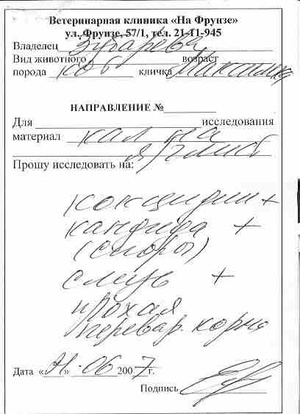 Ветеринарная клиника «На Фрунзе»
ул. Фрунзе, 57/1, тел. 21-11-945
Владелец
Вид животного возраст
порода кличка
НАПРАВЛЕНИЕ №
Для исследования
материал кал на
я/глист
Прошу исследовать на:
кокцидии +
кандида +
(споры)
слизь +
плохая
перевар. корма
Дата «21» 06 2007 г.
Подпись